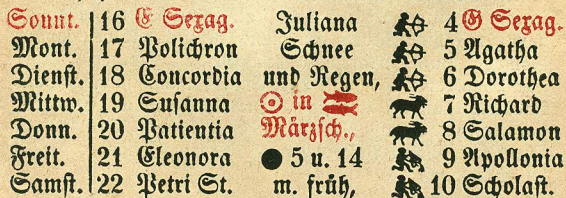 Sonnt. 16 E Sexag. Juliana 4 G Sexag.
Mont. 17 Polichron Schnee 5 Agatha
Dienst. 18 Concordia und Regen, 6 Dorothea
Mittw. 19 Susanna ☉ in ♓ 7 Richard
Donn. 20 Patientia Märzsch., 8 Salamon
Freit. 21 Eleonora ● 5 u. 14 9 Apollonia
Samst. 22 Petri St. m. früh, 10 Scholast.